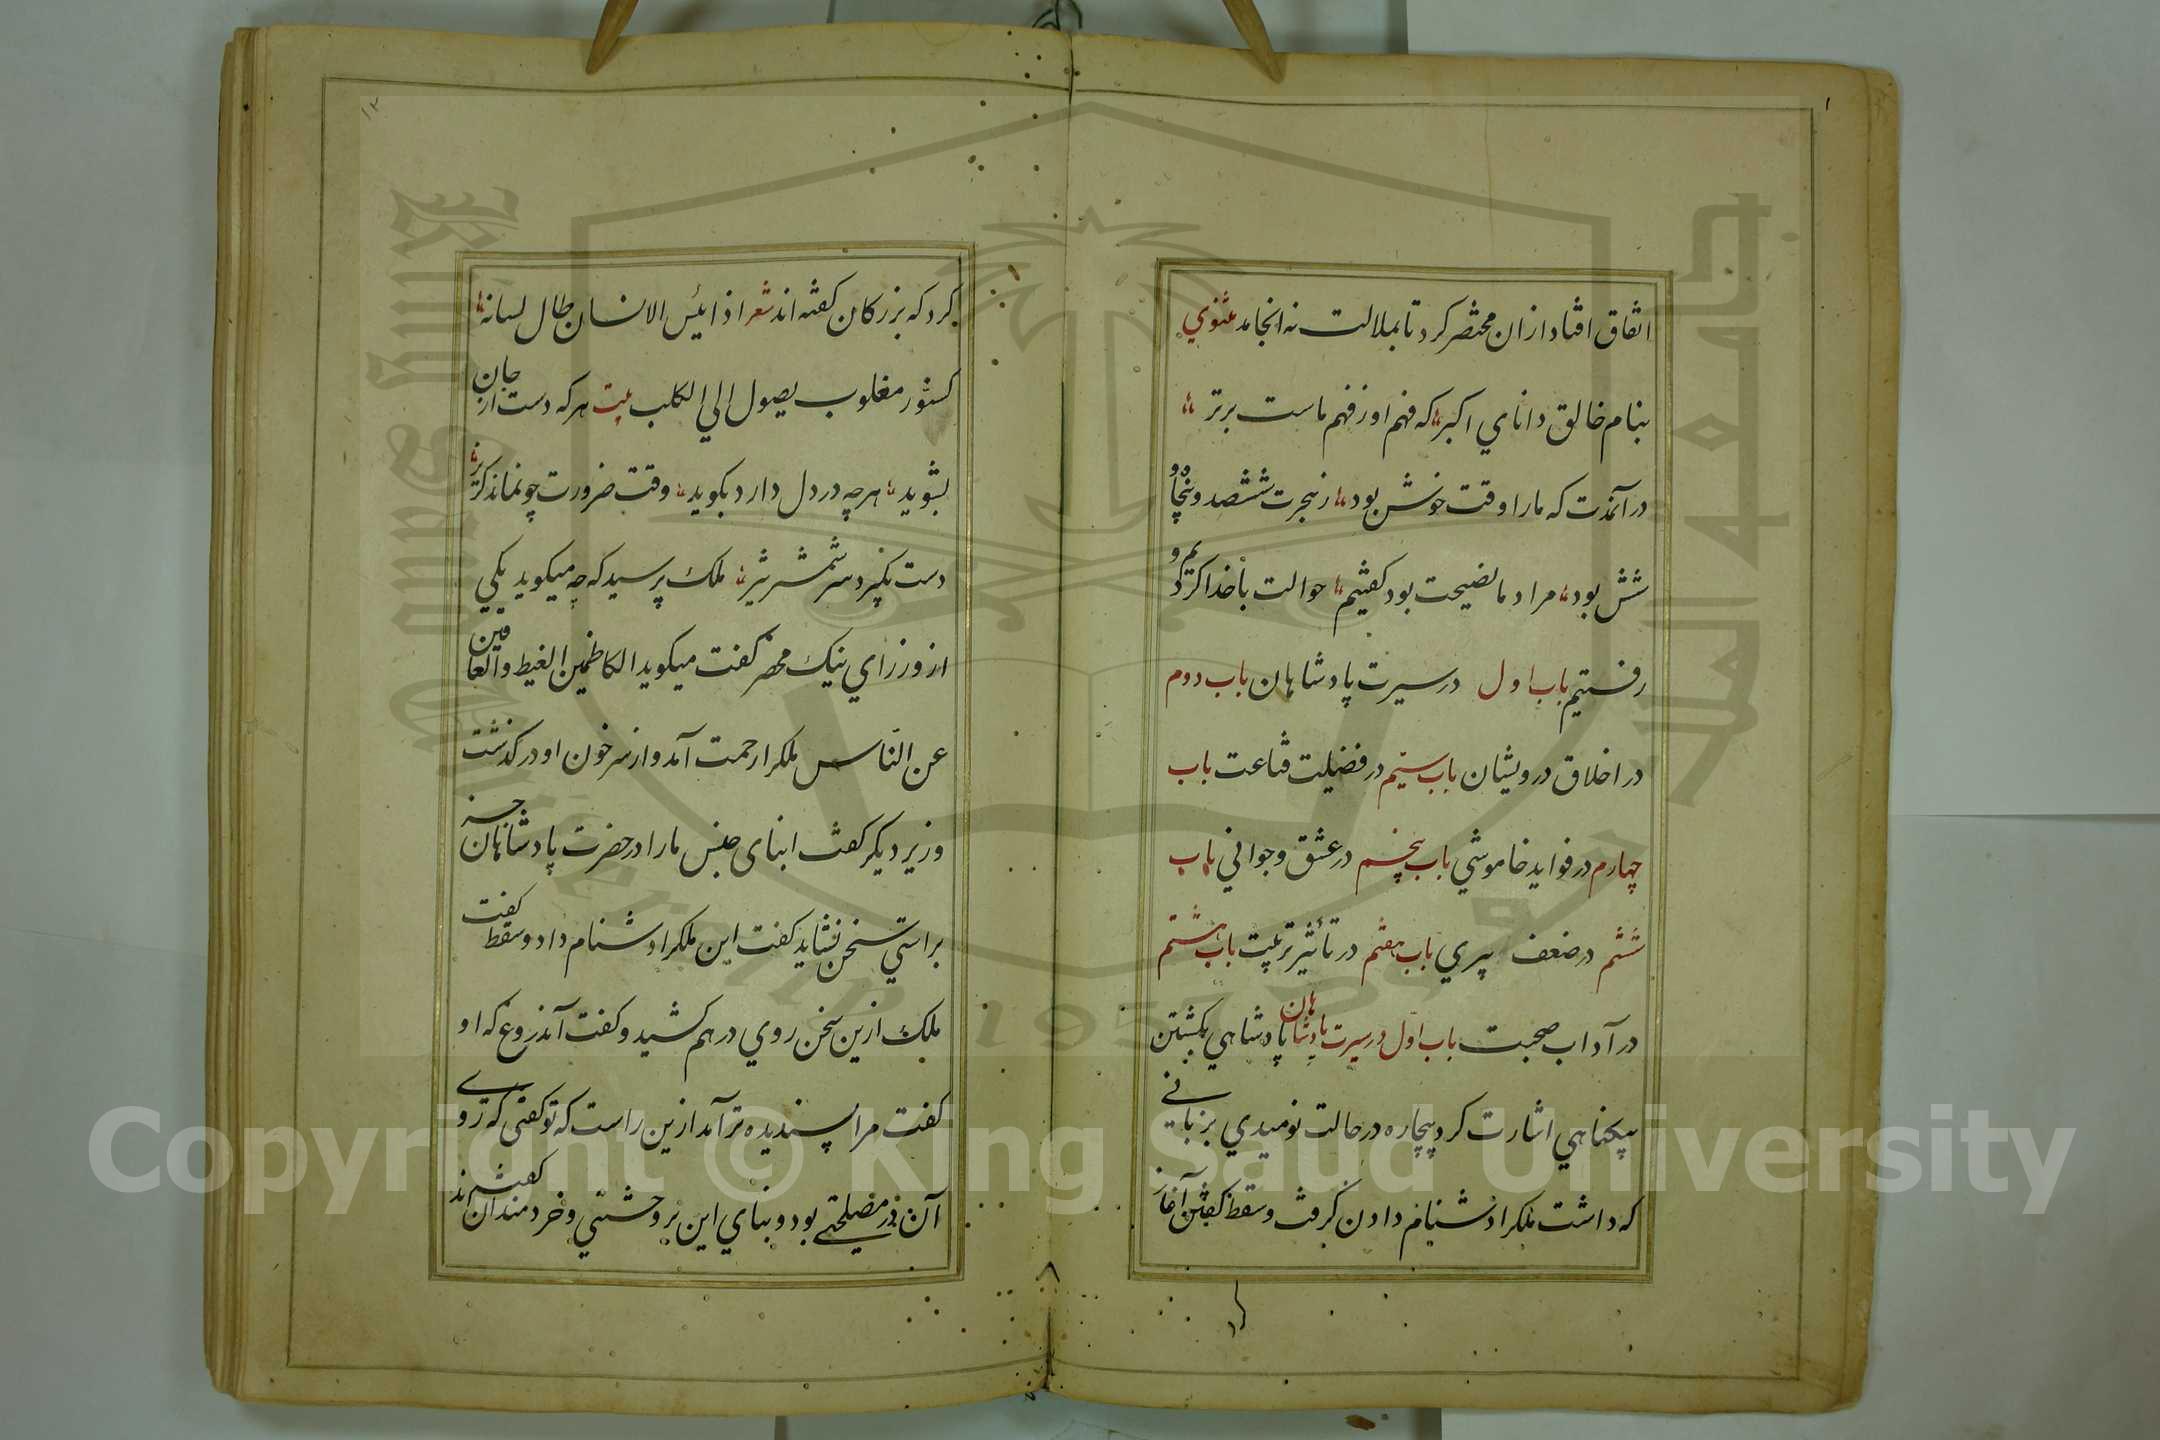 اتفاق افتاد ازان مختصر کرد تا بملالت نه انجامد مثنوي
بنام خالق داناي اکبر که فهم او ز فهم ماست برتر
در آنمدت که ما را وقت خوش بود ز هجرت ششصد و پنجاه و
شش بود مراد ما نصیحت بود گفتیم حوالت با خدا کردیم و
رفتیم باب اول در سیرت پادشاهان باب دوم
در اخلاق درویشان باب سیم در فضیلت قناعت باب
چهارم در فواید خاموشي باب پنجم در عشق و جواني باب
ششم در ضعف پیري باب هفتم در تأثیر تربیت باب هشتم
در آداب صحبت باب اوّل در سیرت پادشاهان پادشاهي بکشتن
بیکناهي اشارت کرد بیچاره در حالت نومیدي بزبانی
که داشت ملکرا دشنام دادن کرفت و سقط کفتن آغاز
کرد که بزرکان کفته اند شعر اذا یئس الانسان طال لسانه
کسنور مغلوب یصول الي الکلب بیت هرکه دست از جان
بشوید هرچه در دل دارد بکوید وقت ضرورت چو نماند کریز
دست بکیرد سر شمشیر تیز ملك پرسید که چه میکوید یکي
از وزراي نیك محضر کفت میکوید الکاظمین الغیظ والعافین
عن النّاس ملکرا رحمت آمد و از سر خون او در کذشت
وزیر دیکر کفت ابنای جنس ما را در حضرت پادشاهان جز
براستي سخن نشاید کفت این ملکرا دشنام داد و سقط کفت
ملك ازین سخن روي در هم کشید و کفت آندروغ که او
کفت مرا پسندیده تر آمد ازین راست که تو کفتی که روی
آن در مصلحتی بود و بناي این بر و خردمندان کفته اند
١٢
Copyright © King Saud University
جامعة الملك سعود
King Saud University
1957